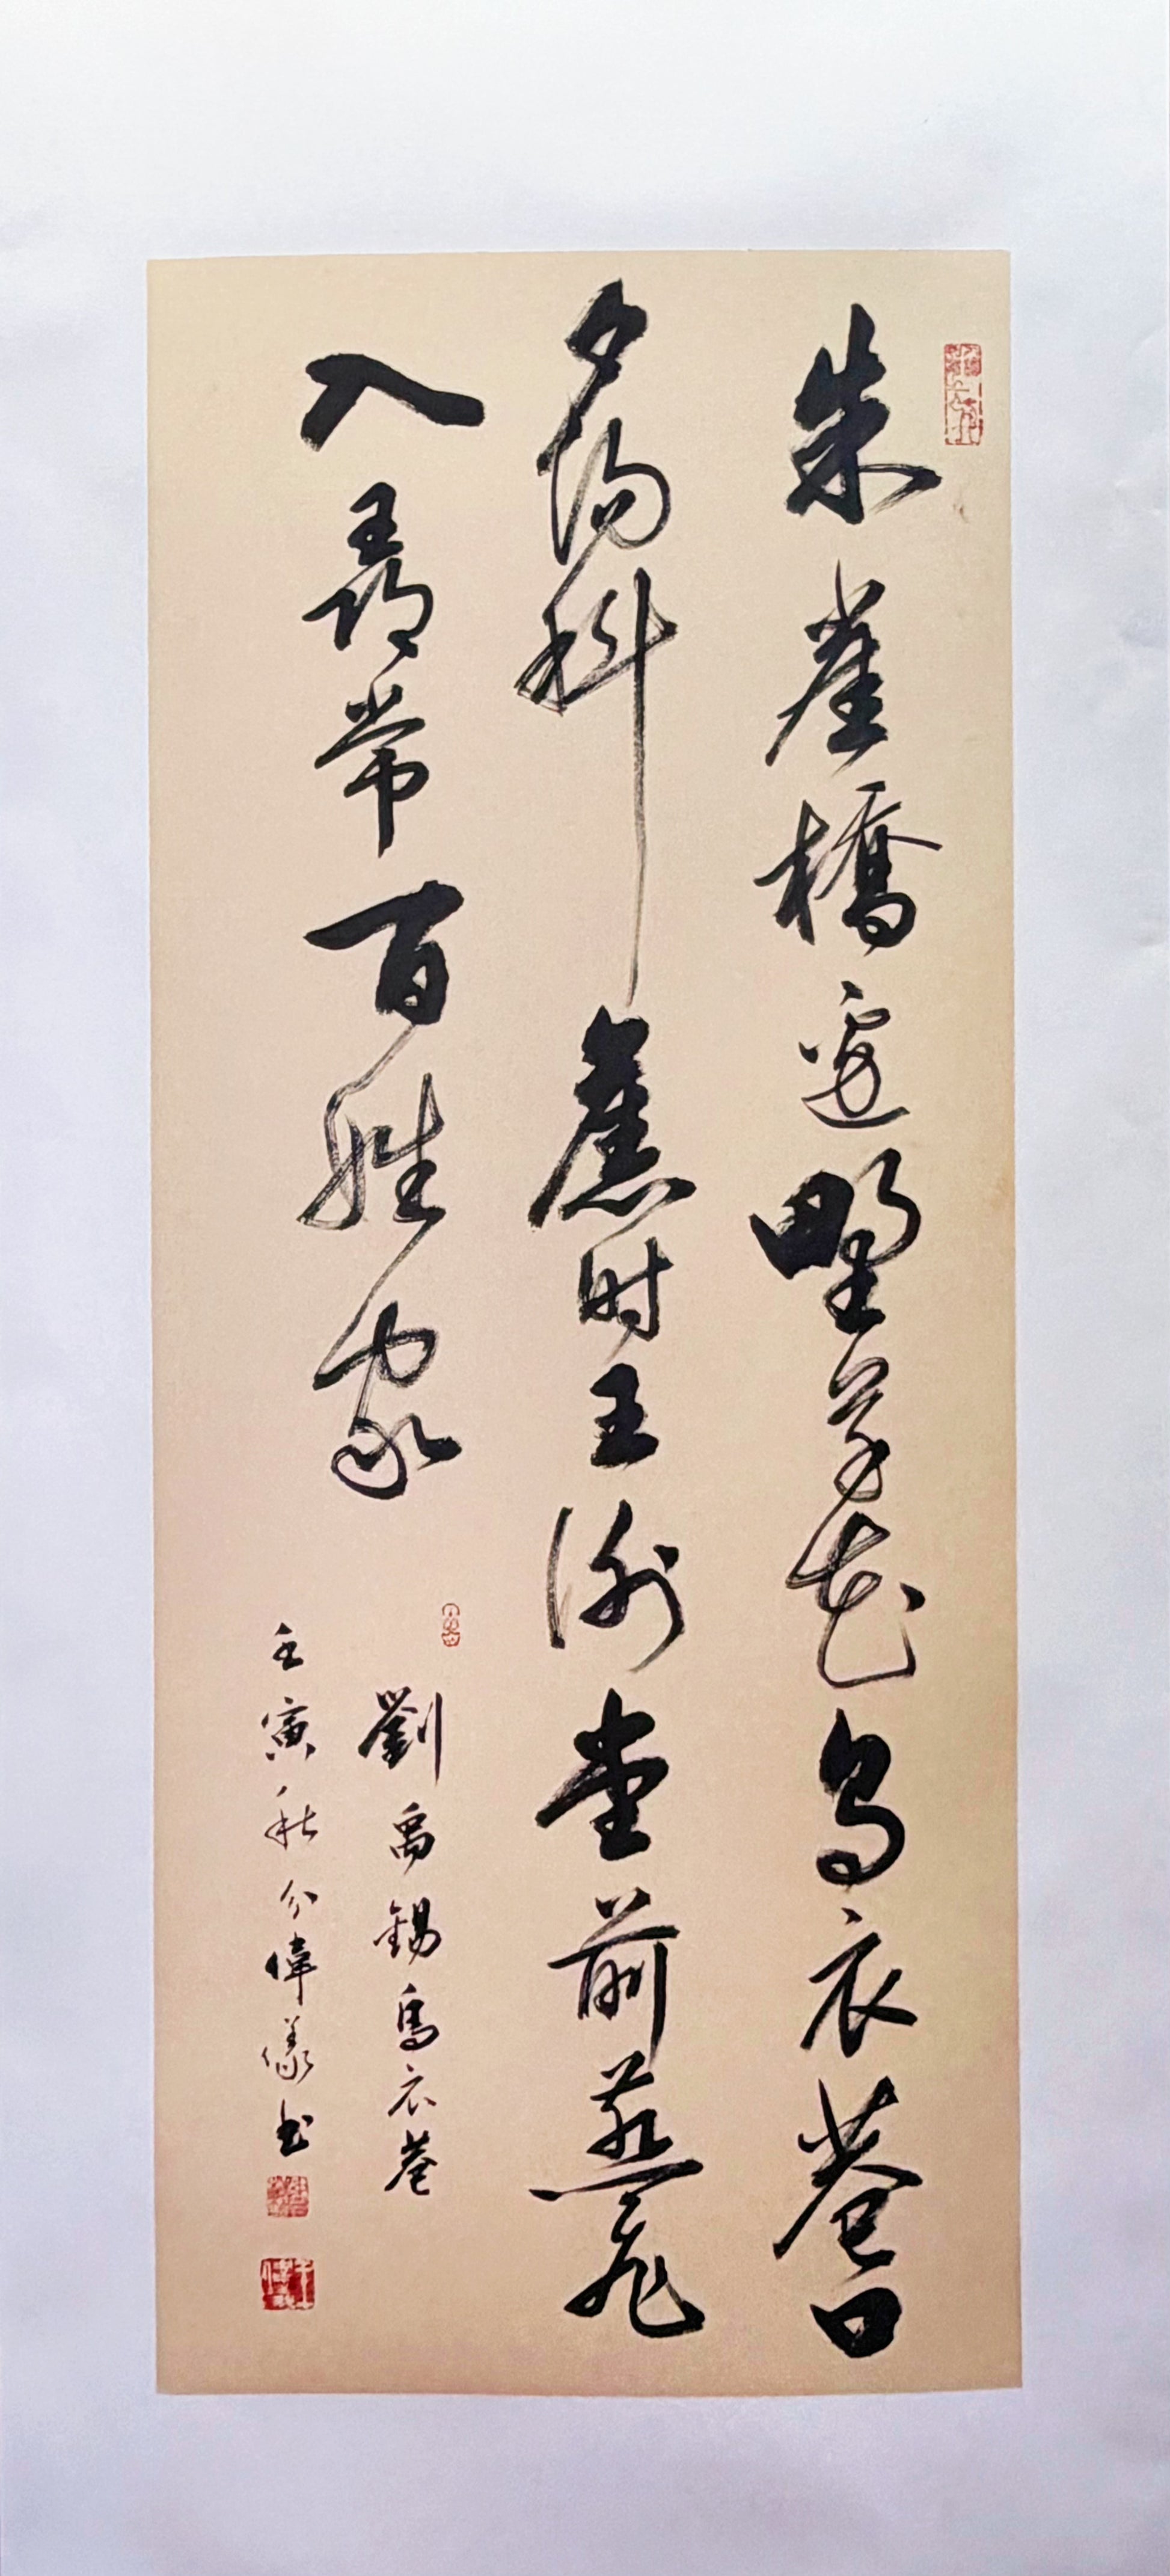 朱雀橋邊野草花烏衣巷口
夕陽斜舊时王謝堂前燕飛
入尋常百姓家
劉禹錫烏衣巷
壬寅秋分偉儀书